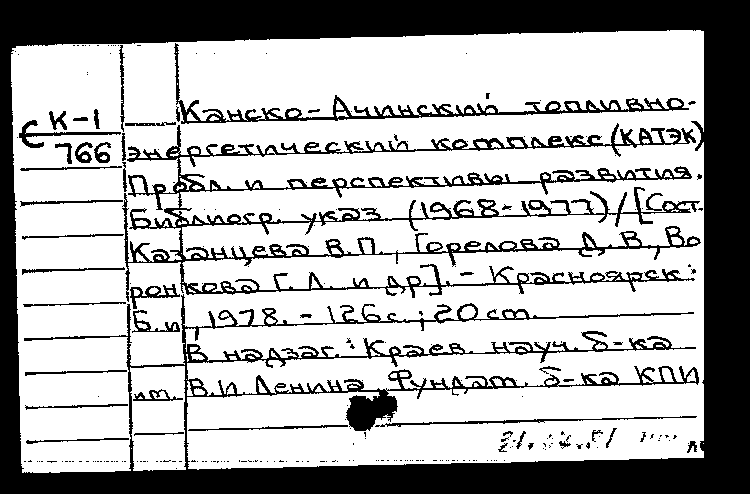 Канско-Ачинский топливно-
С К-1
766
энергетический комплекс (КАТЭК)
Пробл. и перспективы развития.
Библиогр. указ. (1968-1977)/[Сост.
Казанцева В.П., Горелова Д.В., Во
ронкова Г.Л. и др.]. - Красноярск:
Б.и, 1978. - 126с.; 20 ст.
В надзаг.: Краев. науч. б-ка
ит. В.И Ленина Фундат. б-ка КПИ.